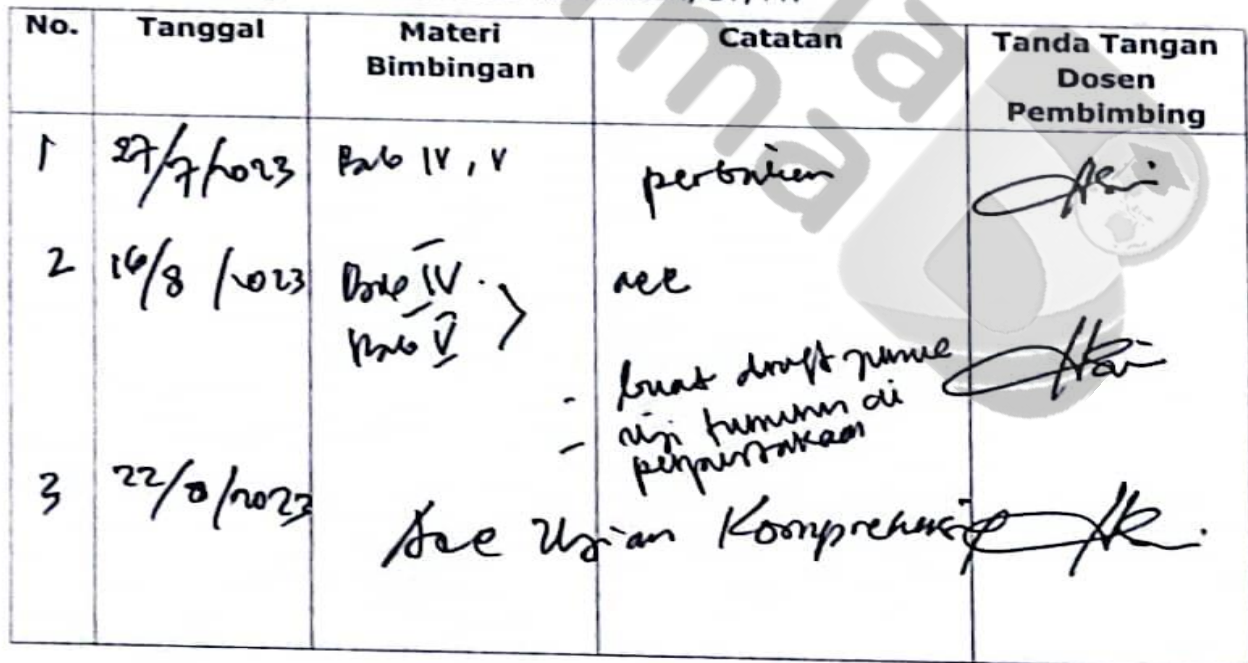 No. Tanggal Materi Bimbingan Catatan Tanda Tangan Dosen Pembimbing
1 27/7/2023 Bab IV, V perbaikan
2 16/8/2023 Bab IV. acc
Bab V
- buat draft
- uji di
perpustakaan
3 22/8/2023 Acc Ujian Komprehensif